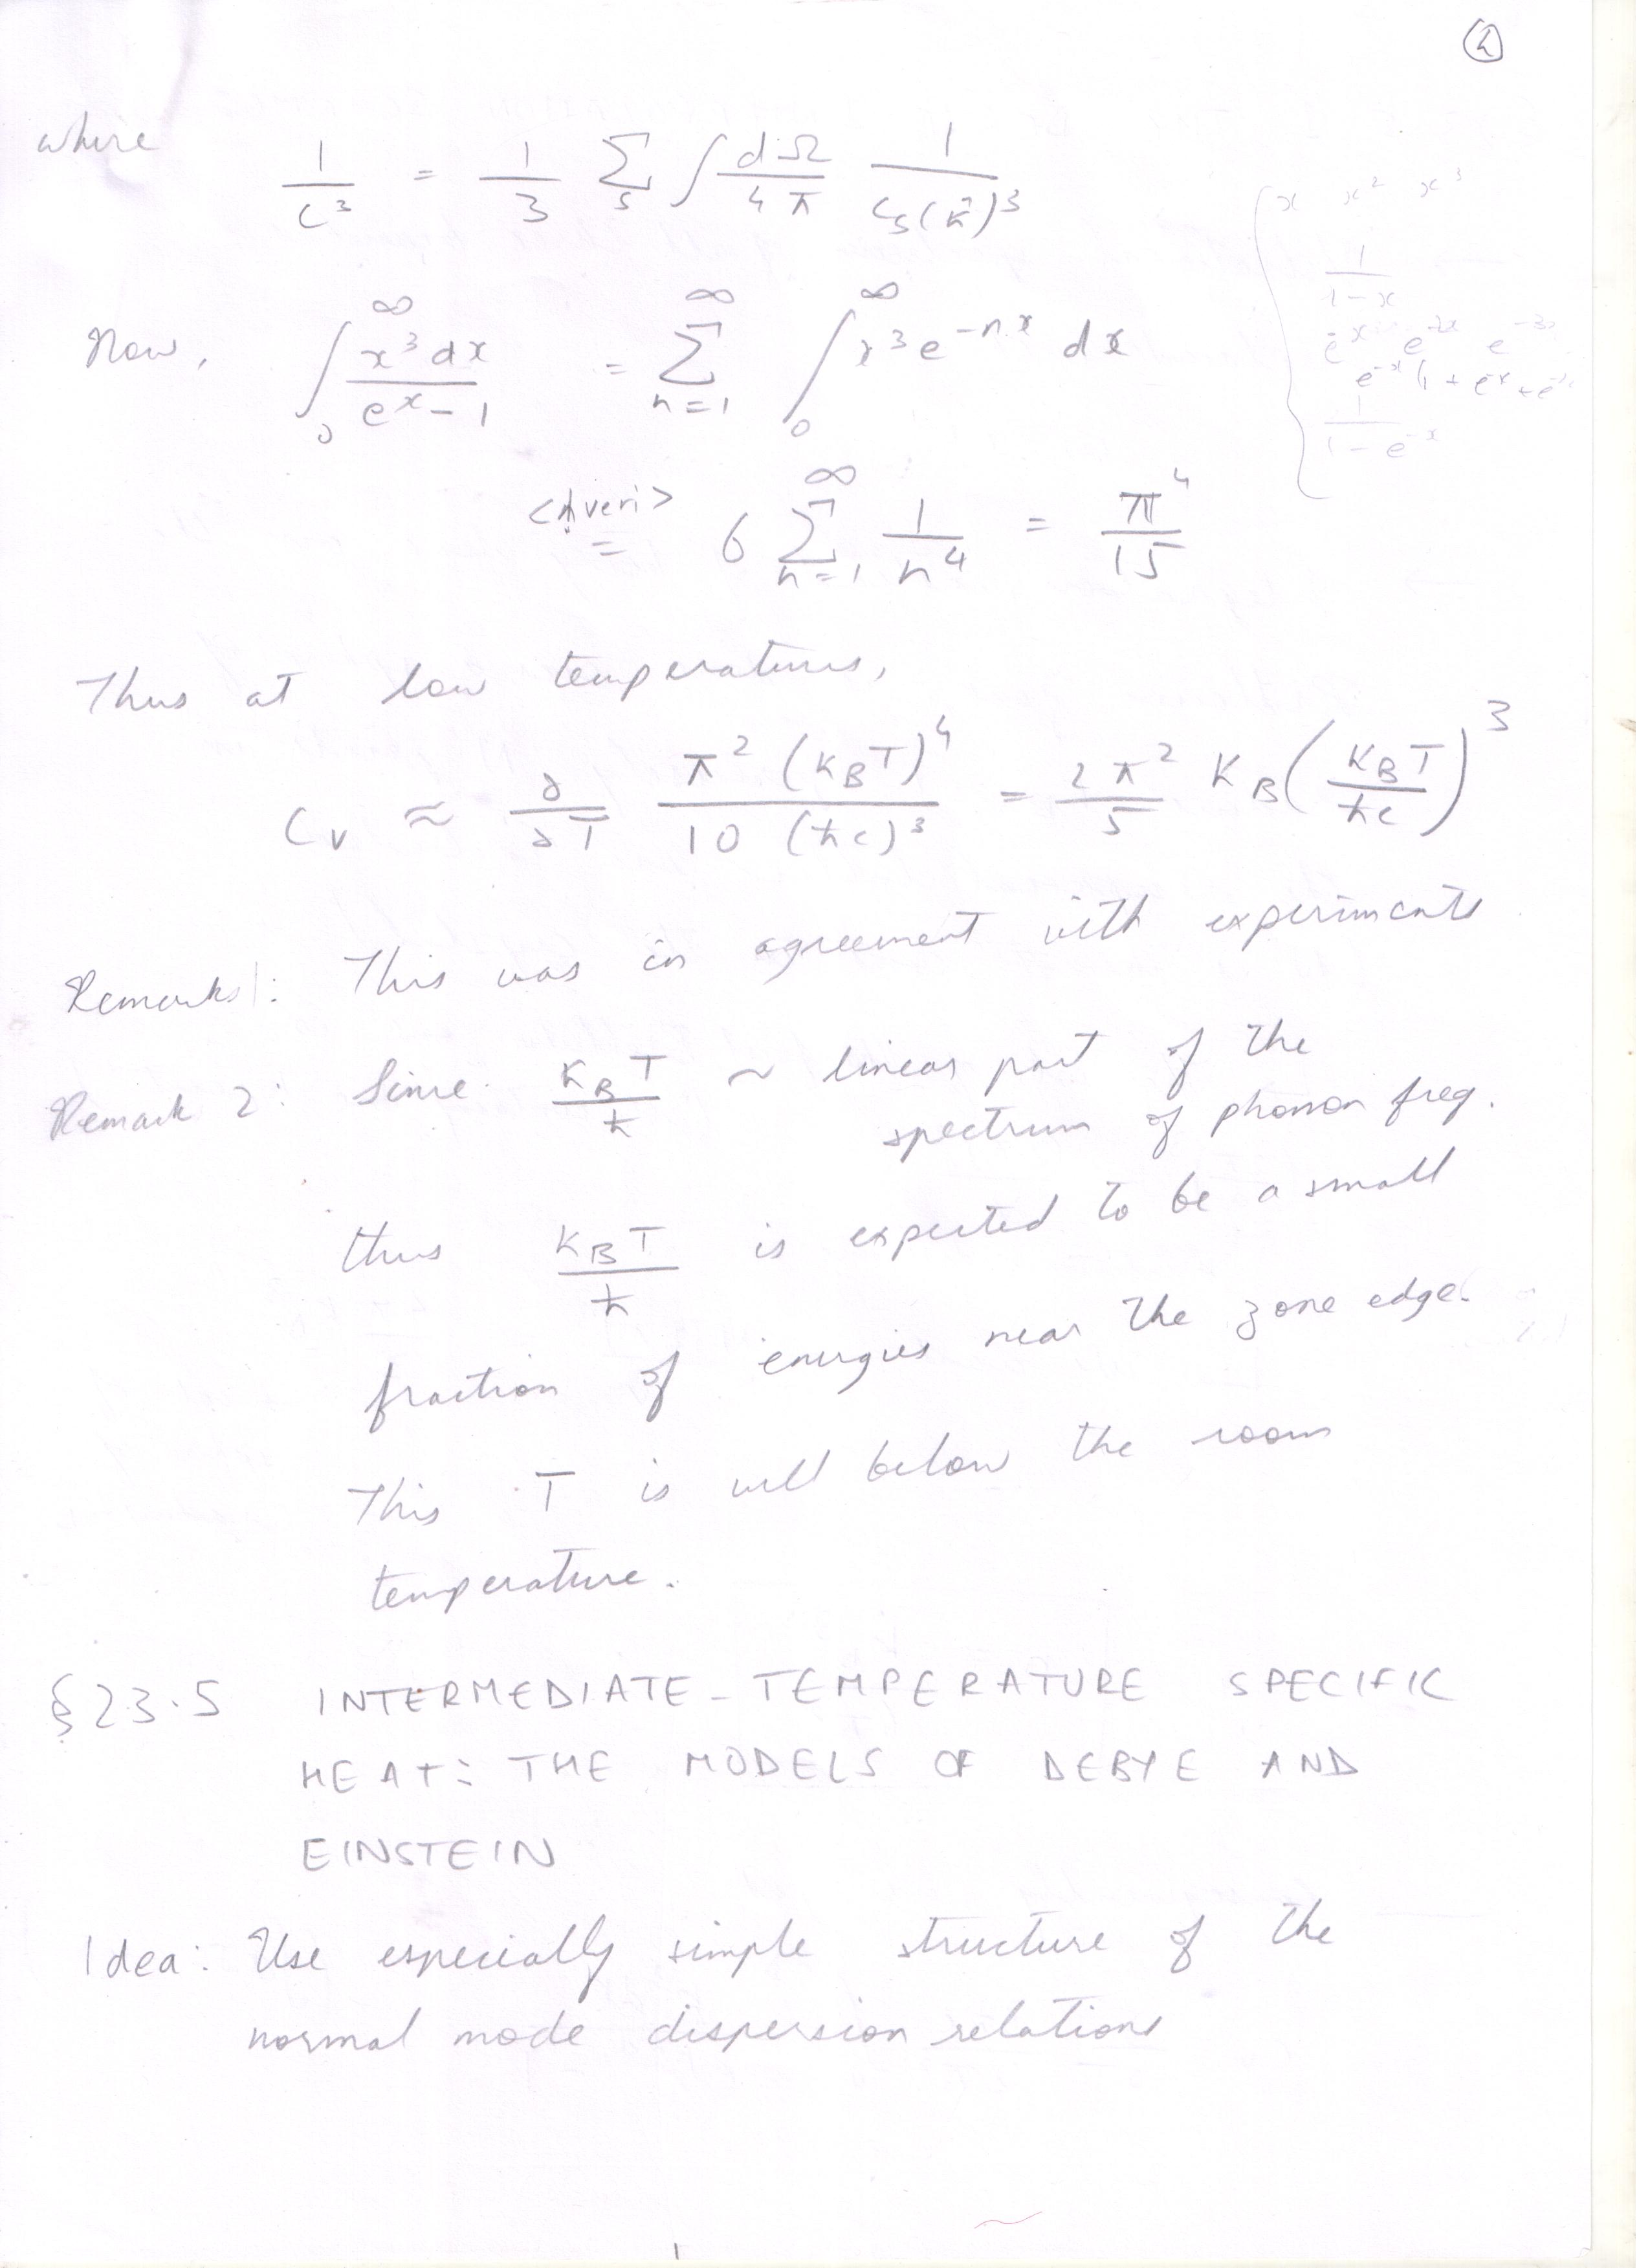 2
where 1/c³ = 1/3 Σ_s ∫ dΩ/4π 1/c_s(k̂)³
x x² x³
1/(1-x)
e^-x e^-2x e^-3x
e^-x (1 + e^-x + e^-
1/(1-e^-x)
Now, ∫_0^∞ x³dx/(e^x - 1) = Σ_{n=1}^∞ ∫_0^∞ x³e^{-nx} dx
= 6 Σ_{n=1}^∞ 1/n⁴ = π⁴/15
Thus at low temperatures,
c_v ≈ ∂/∂T π²(K_BT)⁴/10(ħc)³ = 2π²/5 K_B(K_BT/ħc)³
Remarks 1: This was in agreement with experiments
Remark 2: Since K_BT/ħ ~ linear part of the
spectrum of phonon freq.
thus K_BT/ħ is expected to be a small
fraction of energies near the zone edge.
This T is well below the room
temperature.
§23.5 INTERMEDIATE-TEMPERATURE SPECIFIC
HEAT: THE MODELS OF DEBYE AND
EINSTEIN
Idea: Use especially simple structure of the
normal mode dispersion relations